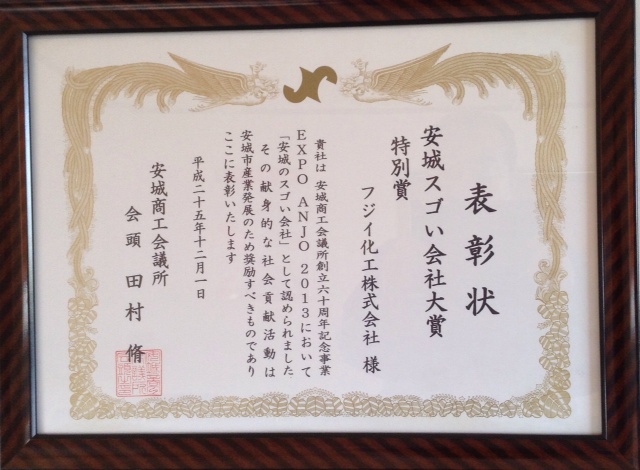 表彰状
安城スゴい会社大賞
特別賞
フジイ化工株式会社 様
貴社は 安城商工会議所創立六十周年記念事業
EXPO ANJO 2013において
「安城のスゴい会社」として認められました
その献身的な社会貢献活動は
安城市産業発展のため奨励すべきものであり
ここに表彰いたします
平成二十五年十二月一日
安城商工会議所
会頭 田村 脩